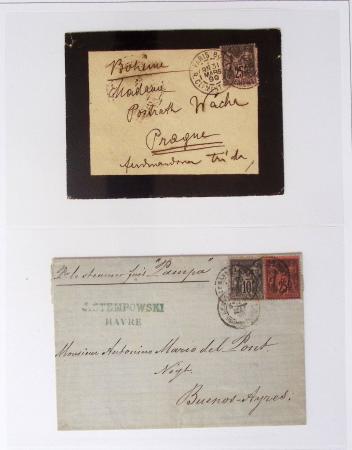 Bohême
Madame
Postrath Wacha
Prague
ferdinandova trída
PARIS
31
MARS
25
p. le steamer fçais "Pampa"
10
25
STEMPOWSKI
HAVRE
Monsieur Antonino Mario del Pont.
Negt.
Buenos-Ayres.